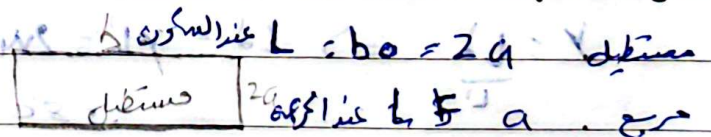 مستطيل L = b0 = 2a عند السكون b
مربع . a L عند الحركة 2a
مستطيل